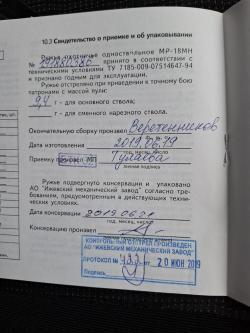 10.3 Свидетельство о приемке и об упаковывании
Ружье охотничье одноствольное МР-18МН
№ принято в соответствии с
техническими условиями ТУ 7185-009-07514647-94
и признано годным для эксплуатации.
Ружье отстреляно при приведении к точному бою
патронами с массой пули:
9,4 г - для основного ствола;
г - для сменного нарезного ствола.
Окончательную сборку произвел Веретенников
Дата изготовления 2019.06.19
год, месяц, число
Приемку произвел МП Тулаева
личная подпись
Ружье подвергнуто консервации и упаковано
АО "Ижевский механический завод" согласно требо-
ваниям, предусмотренным в действующих техниче-
ских условиях.
Дата консервации 2019.06.21
год, месяц, число
Консервацию произвел
КОНТРОЛЬНЫЙ ОТСТРЕЛ ПРОИЗВЕДЕН
АО "ИЖЕВСКИЙ МЕХАНИЧЕСКИЙ ЗАВОД"
ПРОТОКОЛ № 433 от 20 ИЮН 2019
Подпись